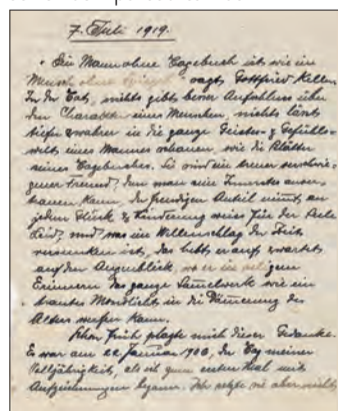 7. Juli 1919.
"Ein Mann ohne Tagebuch ist wie ein
Mensch ohne Spiegel" sagt Gottfried Keller.
In der Tat, nichts gibt besser Aufschluss über
den Charakter eines Menschen, nichts lässt
tiefer & wahrer in die ganze Geistes- & Gefühls-
welt eines Mannes schauen wie die Blätter
seines Tagebuches. Sie sind ein treuer verschwie-
gener Freund, dem man sein Innerstes anver-
trauen kann, der freudigen Anteil nimmt an
jedem Glück & Linderung weiss für der Seele
Leid, und was im Wellenschlag der Zeit
versunken ist, das hebt er auf & wartet
auf den Augenblick, wo er in seligem
Erinnern das ganze Sammelwerk wie ein
trautes Mondlicht in die Dämmerung des
Alters werfen kann.
Schon früh plagte mich dieser Gedanke.
Es war am 22. Januar, der Tag meiner
Volljährigkeit, als ich zum ersten Mal mit
Aufzeichnungen begann. Ich setzte sie aber nicht